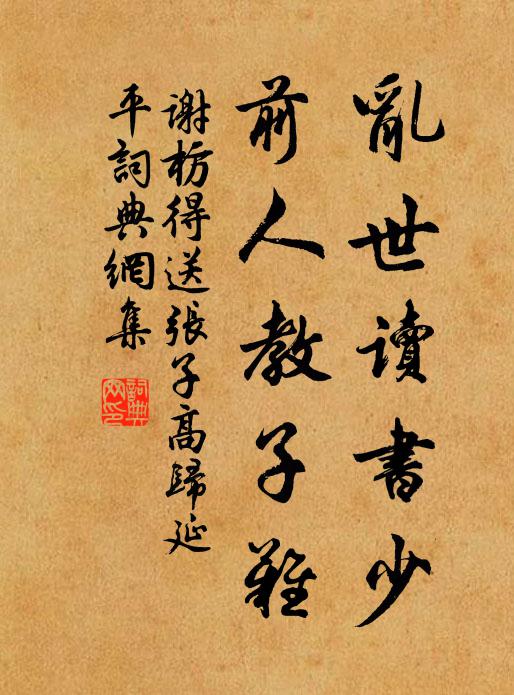 亂世讀書少
前人教子難
謝枋得送張子高歸延
平詞典網集
詞典